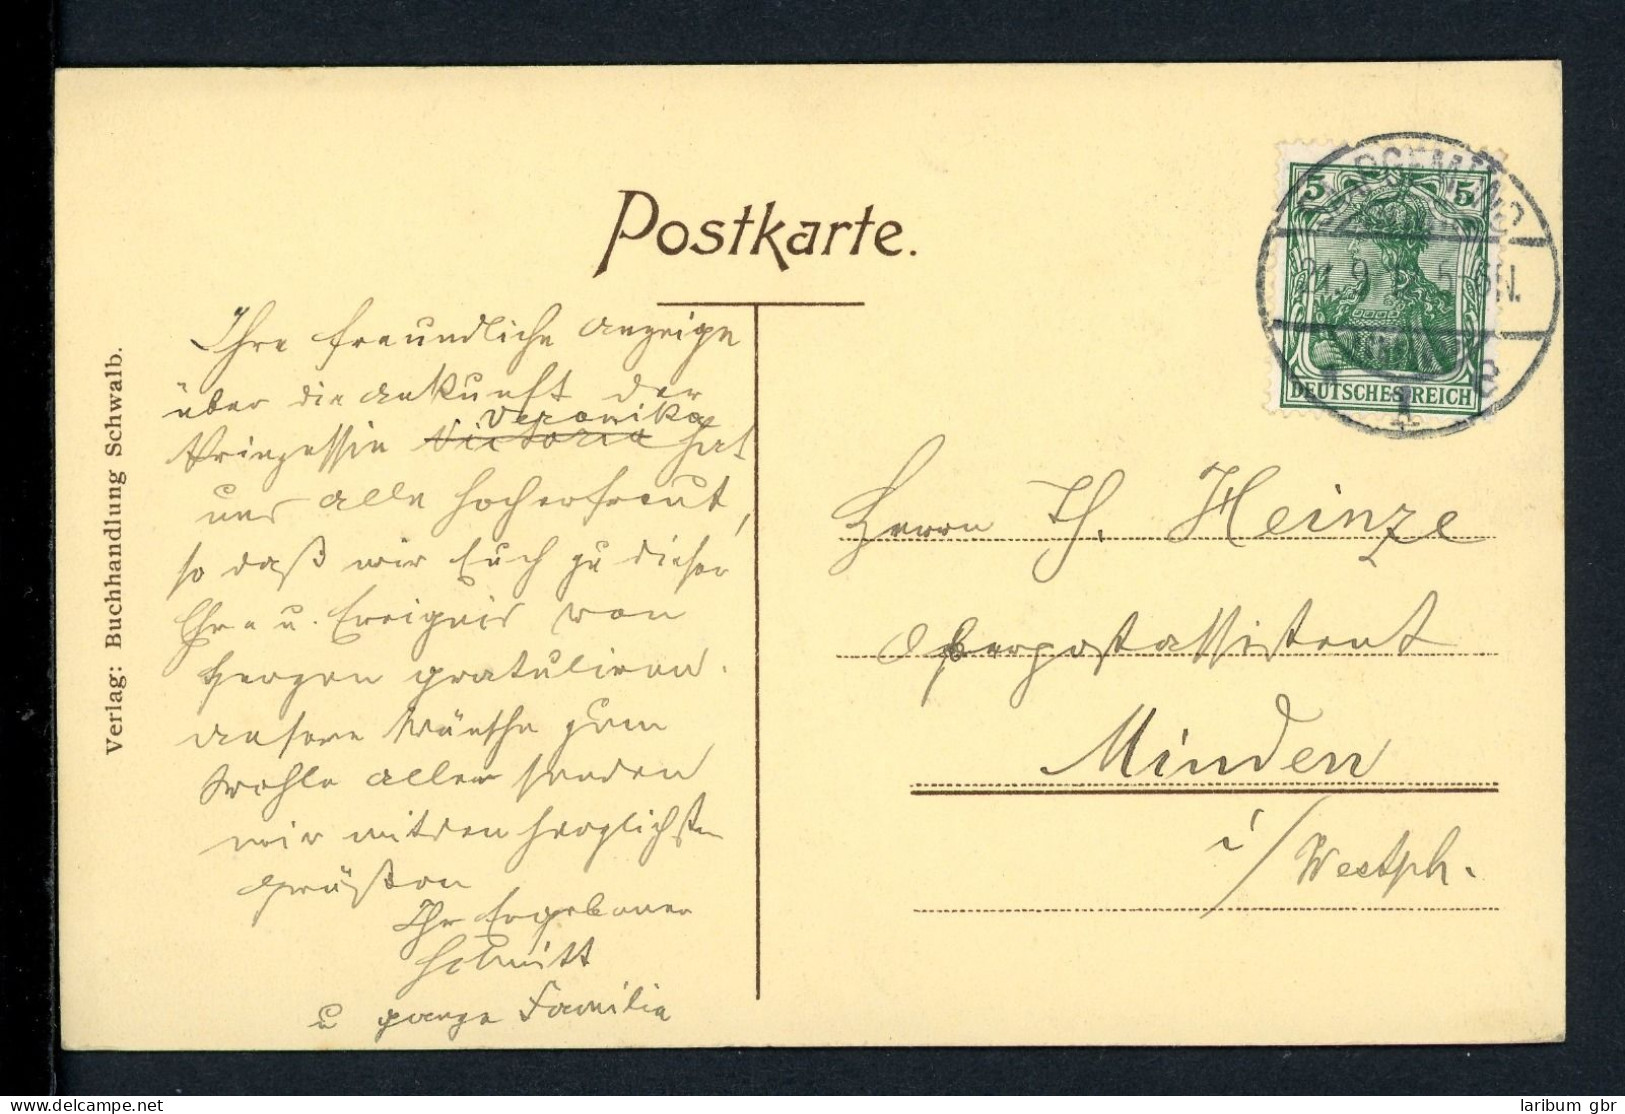 Postkarte.
Ihre freundliche Anzeige
über die Ankunft der
Veronika
Prinzessin Victoria hat
uns alle hocherfreut,
so daß wir Euch zu dieser
Ehre u. Ereignis von
Herzen gratuliren.
Unsere Wünsche zum
Wohle aller senden
wir mit den herzlichsten
Grüßen
Ihr Ergebener
Schmitt
u ganze Familie
Verlag: Buchhandlung Schwalb.
5 5
21.9. 5-6N.
DEUTSCHES REICH
Herrn Th. Heinze
Oberpostassistent
Minden
i/Westph.
laribum gbr
delcampe.net